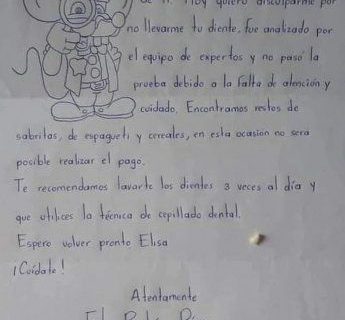 de ti. Hoy quiero disculparme por
no llevarme tu diente, fue analizado por
el equipo de expertos y no pasó la
prueba debido a la falta de atención y
cuidado. Encontramos restos de
sabritas, de espagueti y cereales, en esta ocasion no será
posible realizar el pago.
Te recomendamos lavarte los dientes 3 veces al día y
que utilices la técnica de cepillado dental.
Espero volver pronto Elisa
¡Cuídate!
Atentamente
El